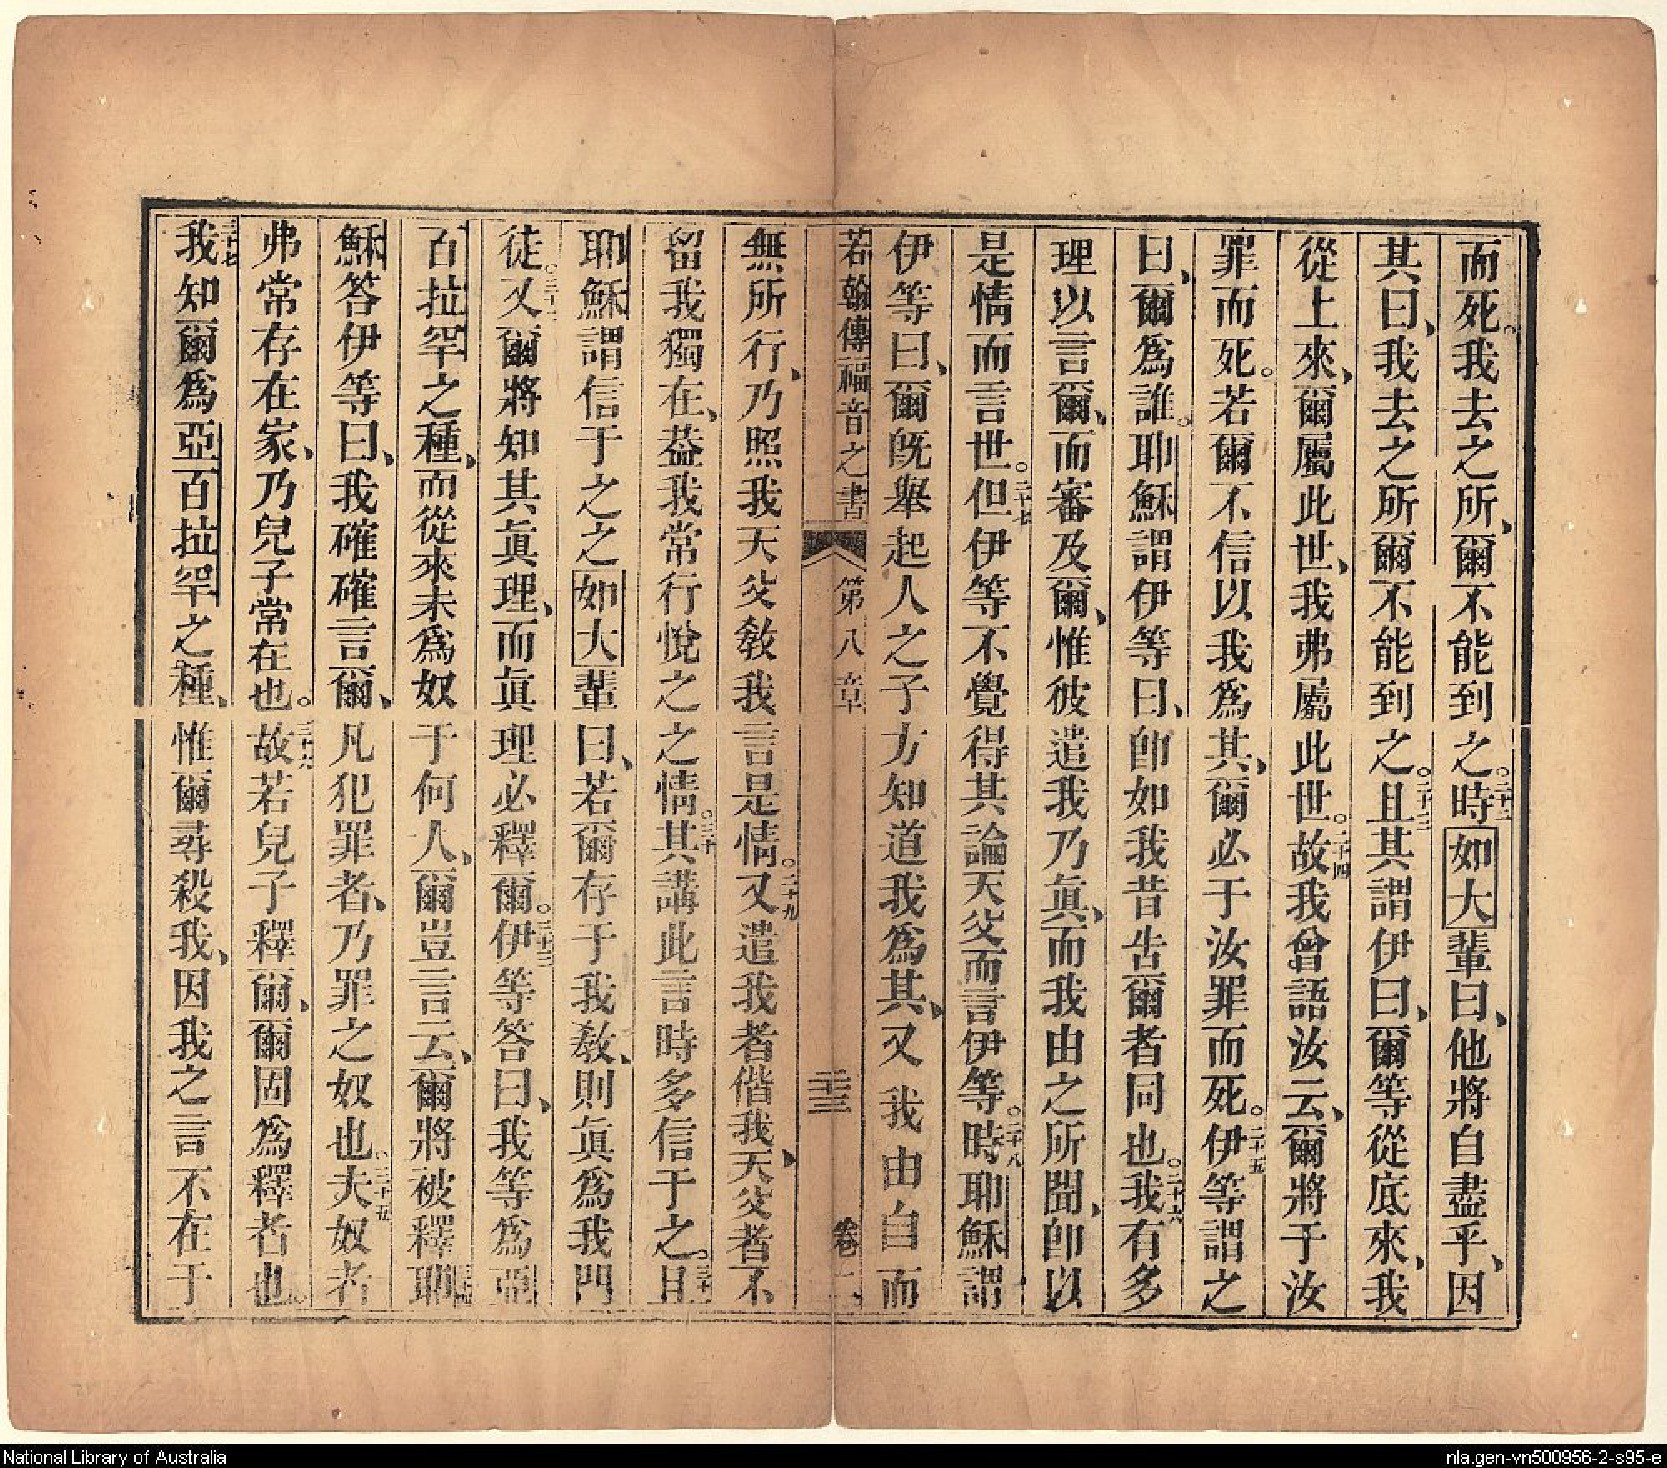 而死。我去之所、爾不能到之。二十二時如大輩曰、他將自盡乎、因
其曰、我去之所爾不能到之。二十三且其謂伊曰、爾等從底來、我
從上來、爾屬此世、我弗屬此世。二十四故我曾語汝云、爾將于汝
罪而死。若爾不信以我爲其、爾必于汝罪而死。二十五伊等謂之
曰、爾爲誰。耶穌謂伊等曰、卽如我昔告爾者同也。二十六我有多
理以言爾、而審及爾、惟彼遣我乃眞、而我由之所聞、卽以
是情而言世。二十七但伊等不覺得其論天父而言伊等。二十八時耶穌謂
伊等曰、爾旣舉起人之子方知道我爲其、又我由自而
若翰傳福音之書 第八章 二十三 卷
無所行、乃照我天父教我言是情。二十九又遣我者偕我、天父者不
留我獨在、葢我常行悅之之情。三十其講此言時多信于之。三十一且
耶穌謂信于之之如大輩曰、若爾存于我教、則眞爲我門
徒。三十二又爾將知其眞理、而眞理必釋爾。三十三伊等答曰、我等爲亞
百拉罕之種、而從來未爲奴于何人、爾豈言云、爾將被釋三十四耶
穌答伊等曰、我確確言爾、凡犯罪者、乃罪之奴也。三十五夫奴者
弗常存在家、乃兒子常在也。三十六故若兒子釋爾、爾固爲釋者也。
三十七我知爾爲亞百拉罕之種、惟爾尋殺我、因我之言不在于
National Library of Australia
nla.gen-vn500956-2-s95-e